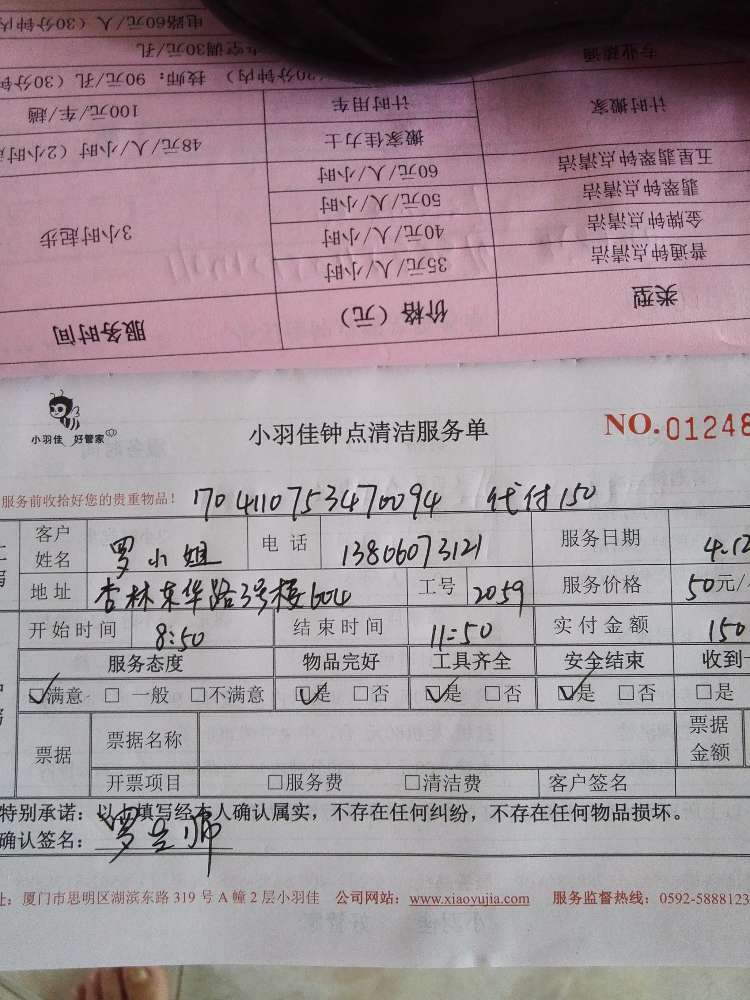 电路60元/人（30分钟内
专业疏通
空调30元/孔
30分钟内） 技师：90元/孔（30分钟
计时搬家 计时用车 100元/车/趟
搬家佳力士 48元/人/小时（2小时
五星翡翠钟点清洁 60元/人/小时
翡翠钟点清洁 50元/人/小时
金牌钟点清洁 40元/人/小时 3小时起步
普通钟点清洁 35元/人/小时
类型 价格（元） 服务时间
小羽佳 好管家 小羽佳钟点清洁服务单 NO.01248
服务前收拾好您的贵重物品！ 1704110753470094 代付150
客户姓名 罗小姐 电话 13806073121 服务日期 4.12
地址 杏林东华路3号楼604 工号 2059 服务价格 50元/
开始时间 8:50 结束时间 11:50 实付金额 150
服务态度 物品完好 工具齐全 安全结束 收到
☑满意 □一般 □不满意 ☑是 □否 ☑是 □否 ☑是 □否 □是
票据 票据名称 票据金额
开票项目 □服务费 □清洁费 客户签名
特别承诺：以上填写经本人确认属实，不存在任何纠纷，不存在任何物品损坏。
确认签名：
址：厦门市思明区湖滨东路 319 号 A 幢 2 层小羽佳 公司网站：www.xiaoyujia.com 服务监督热线：0592-5888123